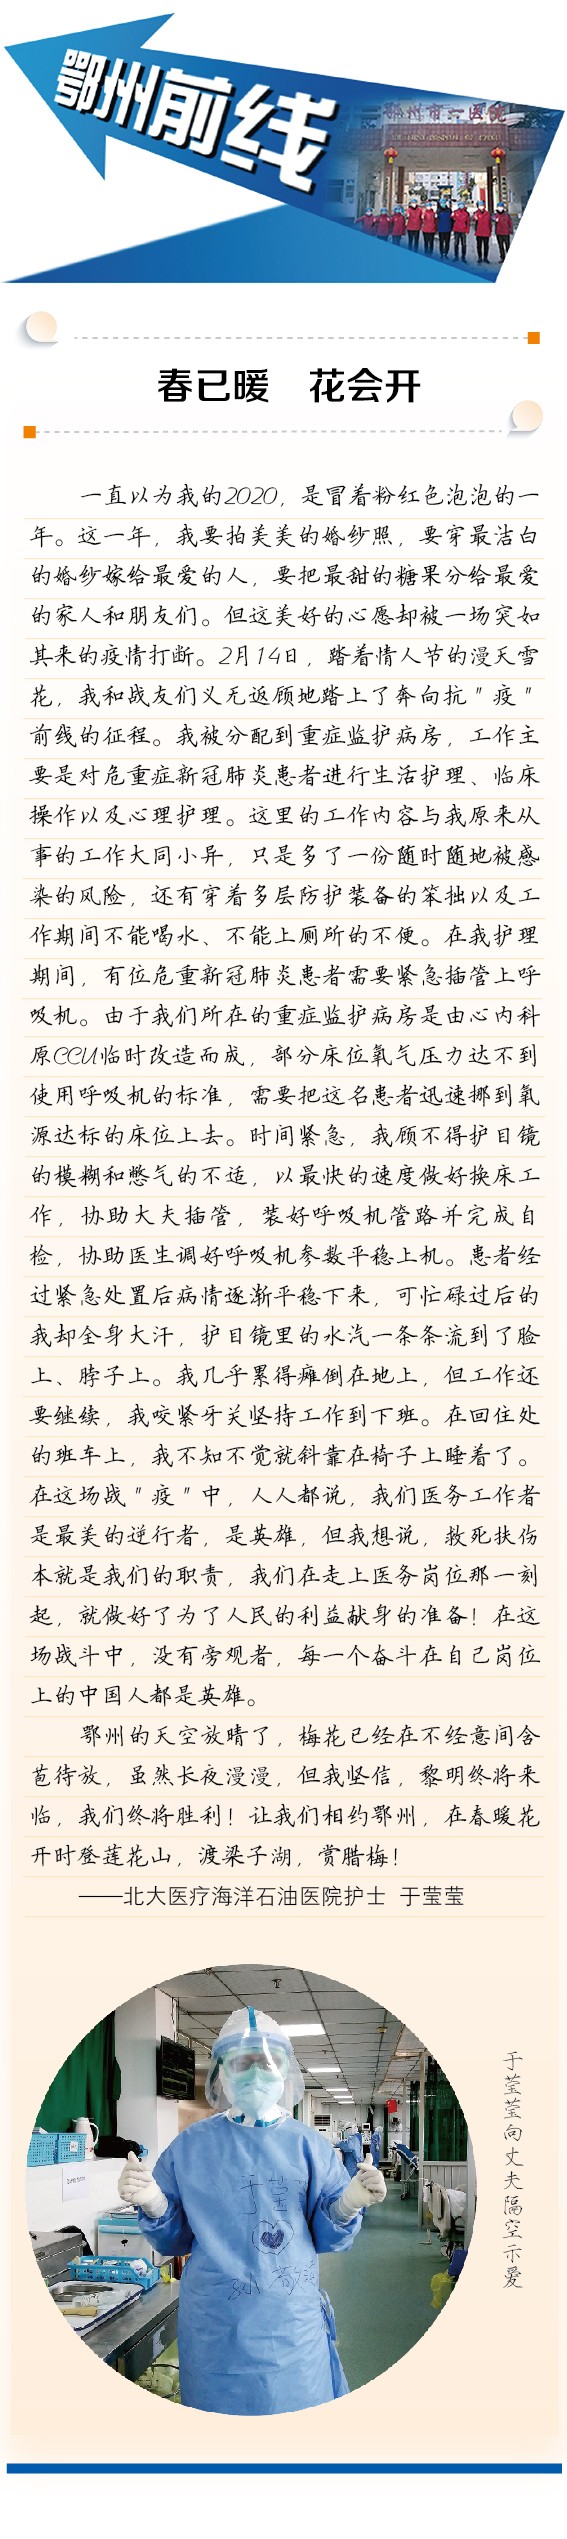 鄂州前线
鄂州市一医院
春已暖　花会开
一直以为我的2020，是冒着粉红色泡泡的一
年。这一年，我要拍美美的婚纱照，要穿最洁白
的婚纱嫁给最爱的人，要把最甜的糖果分给最爱
的家人和朋友们。但这美好的心愿却被一场突如
其来的疫情打断。2月14日，踏着情人节的漫天雪
花，我和战友们义无返顾地踏上了奔向抗"疫"
前线的征程。我被分配到重症监护病房，工作主
要是对危重症新冠肺炎患者进行生活护理、临床
操作以及心理护理。这里的工作内容与我原来从
事的工作大同小异，只是多了一份随时随地被感
染的风险，还有穿着多层防护装备的笨拙以及工
作期间不能喝水、不能上厕所的不便。在我护理
期间，有位危重新冠肺炎患者需要紧急插管上呼
吸机。由于我们所在的重症监护病房是由心内科
原CCU临时改造而成，部分床位氧气压力达不到
使用呼吸机的标准，需要把这名患者迅速挪到氧
源达标的床位上去。时间紧急，我顾不得护目镜
的模糊和憋气的不适，以最快的速度做好换床工
作，协助大夫插管，装好呼吸机管路并完成自
检，协助医生调好呼吸机参数平稳上机。患者经
过紧急处置后病情逐渐平稳下来，可忙碌过后的
我却全身大汗，护目镜里的水汽一条条流到了脸
上、脖子上。我几乎累得瘫倒在地上，但工作还
要继续，我咬紧牙关坚持工作到下班。在回住处
的班车上，我不知不觉就斜靠在椅子上睡着了。
在这场战"疫"中，人人都说，我们医务工作者
是最美的逆行者，是英雄，但我想说，救死扶伤
本就是我们的职责，我们在走上医务岗位那一刻
起，就做好了为了人民的利益献身的准备！在这
场战斗中，没有旁观者，每一个奋斗在自己岗位
上的中国人都是英雄。
鄂州的天空放晴了，梅花已经在不经意间含
苞待放，虽然长夜漫漫，但我坚信，黎明终将来
临，我们终将胜利！让我们相约鄂州，在春暖花
开时登莲花山，渡梁子湖，赏腊梅！
——北大医疗海洋石油医院护士 于莹莹
于莹莹向丈夫隔空示爱
于莹